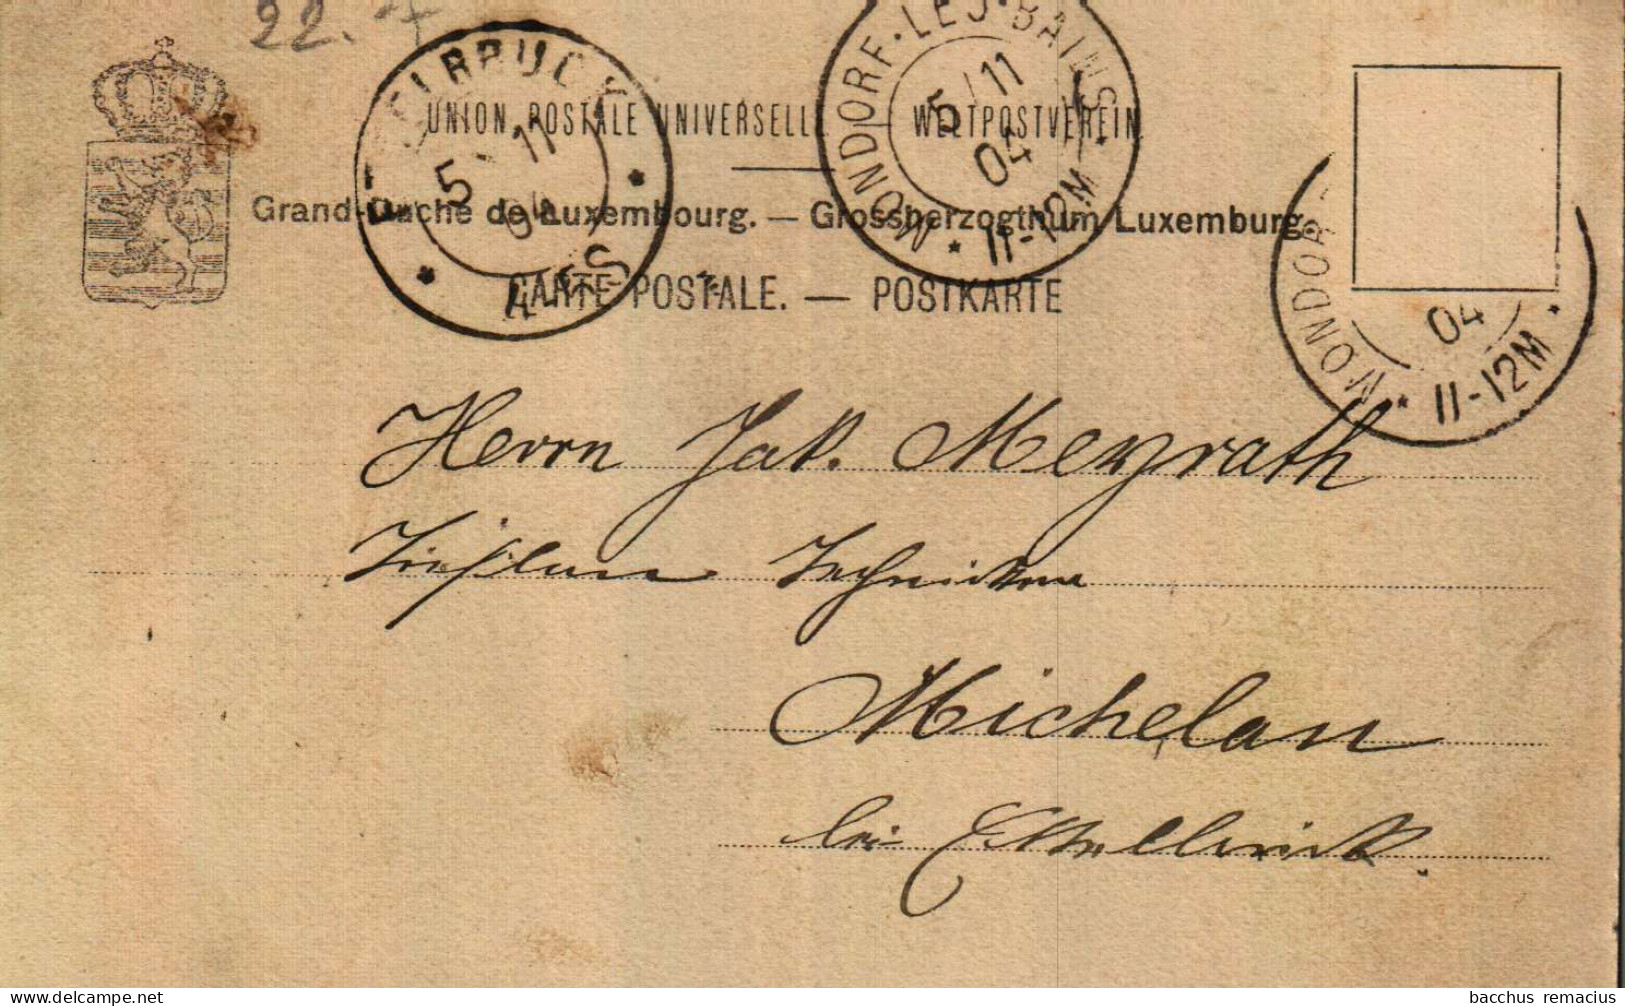 22. 7
ETTELBRUCK
5 11
04
4-5 S
MONDORF-LES-BAINS
5 11
04
11-12M
UNION POSTALE UNIVERSELLE WELTPOSTVEREIN.
Grand-Duché de Luxembourg. — Grossherzogthum Luxemburg.
CARTE POSTALE. — POSTKARTE
MONDORF
04
11-12M
Herrn Jak. Meyrath
Michelau
bei Ettelbrück
bacchus remacius